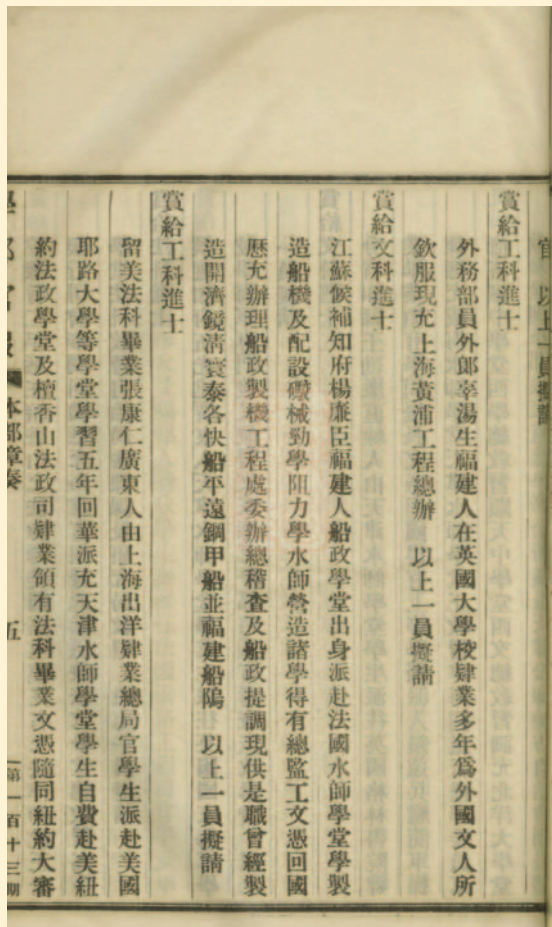 官　以上一員擬請
賞給工科進士
外務部員外郎辜湯生福建人在英國大學校肄業多年爲外國文人所
欽服現充上海黃浦工程總辦　以上一員擬請
賞給文科進士
江蘇候補知府楊廉臣福建人船政學堂出身派赴法國水師學堂學製
造船機及配設礮械勁學阻力學水師營造諸學得有總監工文憑回國
歷充辦理船政製機工程處委辦總稽查及船政提調現供是職曾經製
造開濟鏡清寰泰各快船平遠鋼甲船並福建船隖　以上一員擬請
賞給工科進士
留美法科畢業張康仁廣東人由上海出洋肄業總局官學生派赴美國
耶路大學等學堂學習五年回華派充天津水師學堂學生自費赴美紐
約法政學堂及檀香山法政司肄業領有法科畢業文憑隨同紐約大審
學部官報　本部章奏　五　第一百十三期